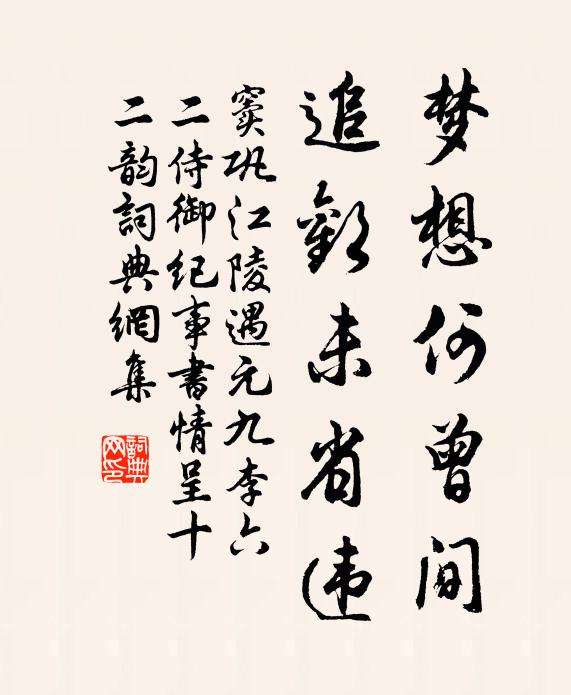 梦想何曾间
追欢未省违
窦巩江陵遇元九李六
二侍御纪事书情呈十
二韵词典网集
詞典网印